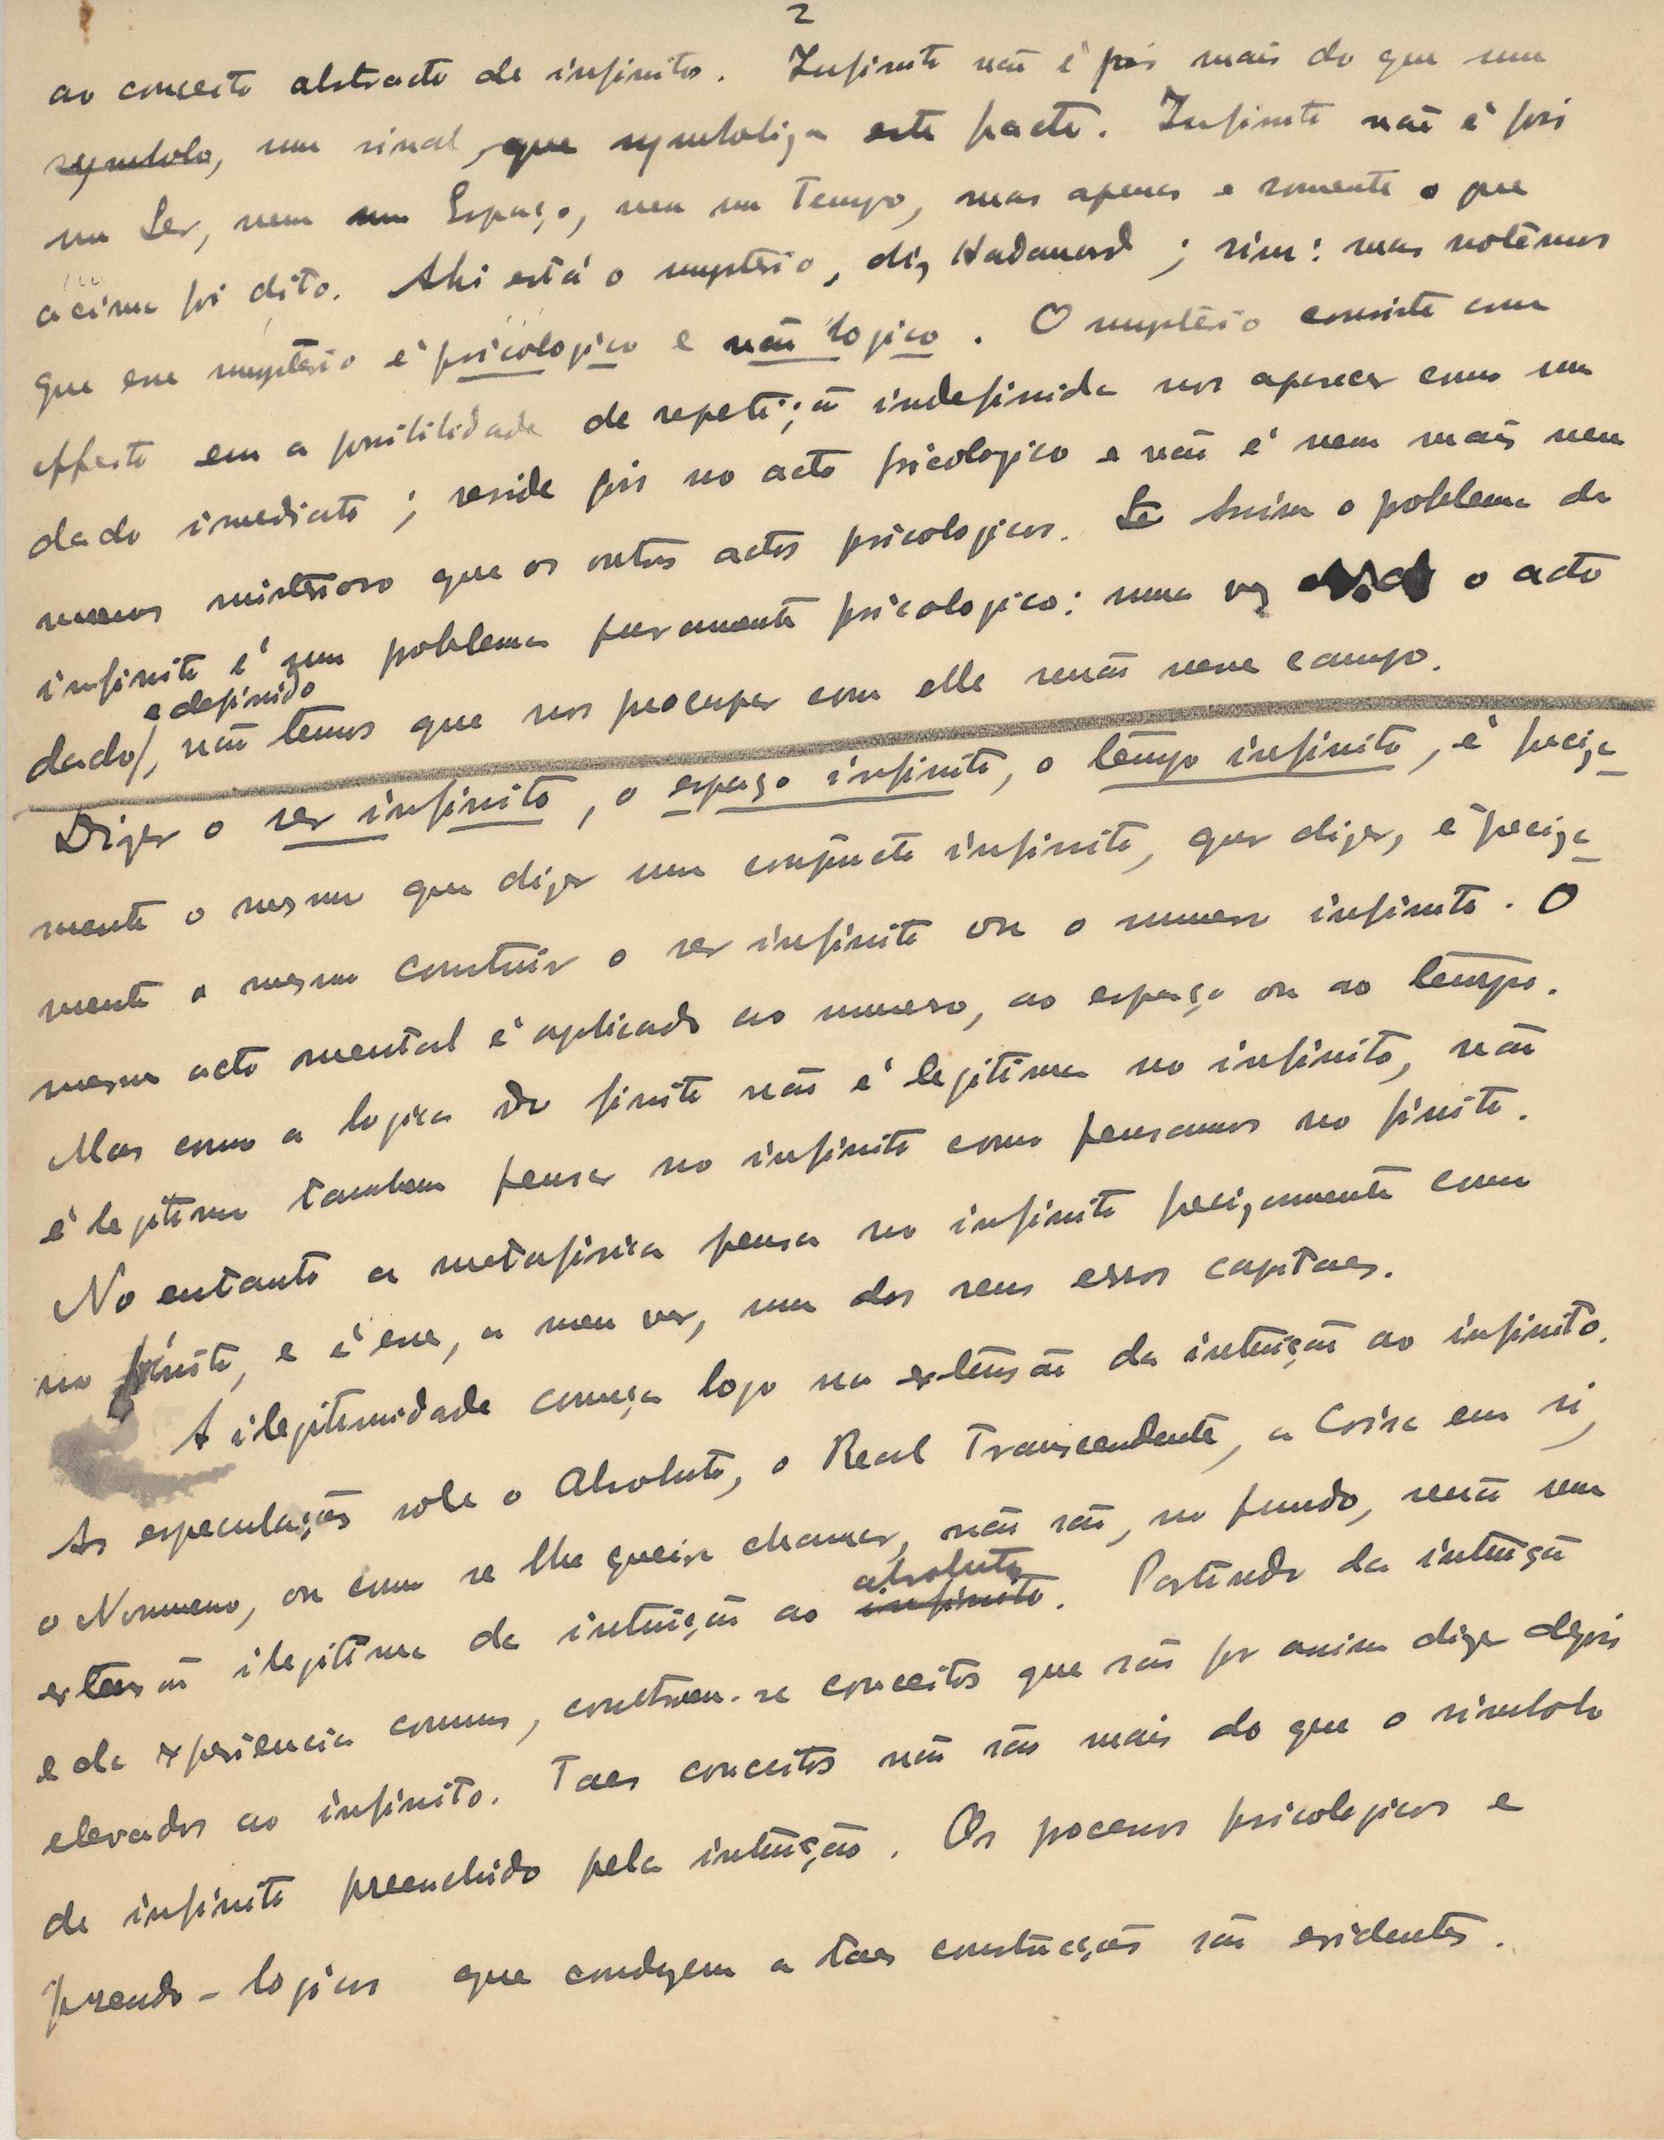 2
ao conceito abstracto de infinito. Infinito não é pois mais do que um
symbolo, um sinal, que symboliza este facto. Infinito não é pois
um Ser, nem um Espaço, nem um Tempo, mas apenas e somente o que
acima foi dito. Ahi está o mysterio, diz Hadamard; sim: mas notêmos
que esse mysterio é psicologico e não logico. O mysterio consiste com
effeito em a possibilidade de repetição indefinida nos aparecer como um
dado imediato; reside pois no acto psicologico e não é nem mais nem
menos misterioso que os outros actos psicologicos. Assim o problema do
infinito é um problema puramente psicologico: uma vez o acto
dado, e definido não temos que nos preocupar com elle senão nesse campo.
Dizer o ser infinito, o espaço infinito, o tempo infinito, é preciza-
mente o mesmo que dizer um conjuncto infinito, quer dizer, é preciza-
mente o mesmo construir o ser infinito ou o numero infinito. O
mesmo acto mental é aplicado ao numero, ao espaço ou ao tempo.
Mas como a logica do finito não é legitima no infinito, não
é legitimo tambem pensar no infinito como pensamos no finito.
No entanto a metafisica pensa no infinito precizamente como
no finito, e é esse, a meu ver, um dos seus erros capitaes.
A ilegitimidade começa logo na extensão da intuição ao infinito.
As especulações sobre o Absoluto, o Real Transcendente, a Coisa em si,
o Noumeno, ou como se lhe queira chamar, não são, no fundo, senão uma
extensão ilegitima da intuição ao infinito absoluto. Partindo da intuição
e da experiencia comum, constroem-se conceitos que são por assim dizer depois
elevados ao infinito. Taes conceitos não são mais do que o simbolo
de infinito preenchido pela intuição. Os processos psicologicos e
pseudo-logicos que conduzem a taes construcções são evidentes.